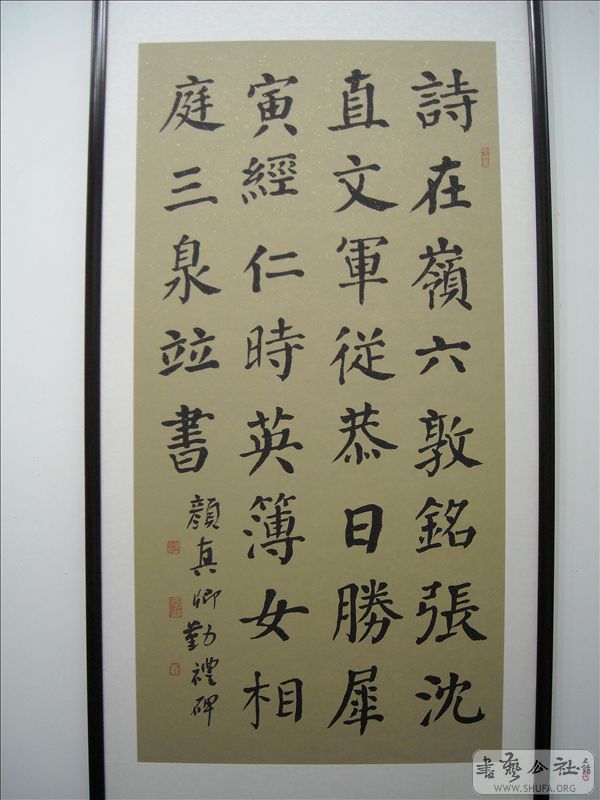 詩在嶺六敦銘張沈
直文軍從恭日勝犀
寅經仁時英簿女相
庭三泉竝書
顏真卿勤禮碑
書藝公社
WWW.SHUFA.ORG